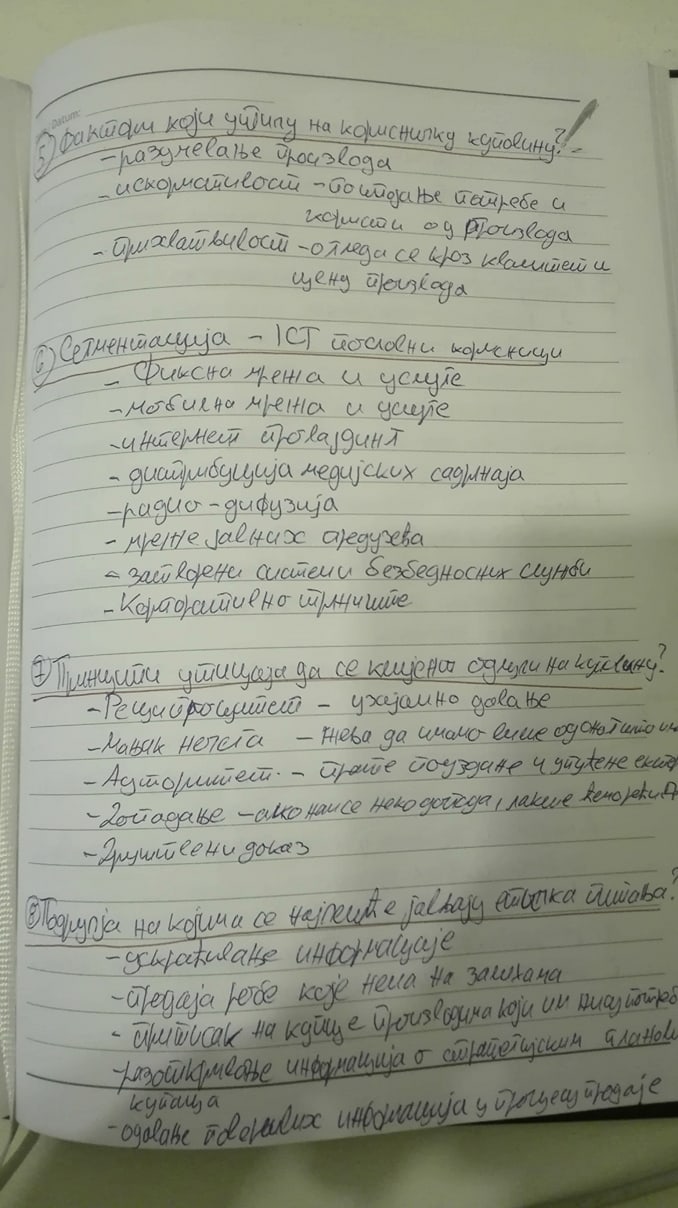 Datum:
5) Фактори који утичу на корисничку куповину?
- разумевање производа
- искористивост - поимање потребе и
користи од производа
- прихватљивост - огледа се кроз квалитет и
цену производа
6) Сегментација - ICT пословни корисници
- Фиксна мрежа и услуге
- мобилна мрежа и услуге
- интернет провајдинг
- дистрибуција медијских садржаја
- радио - дифузија
- мреже јавних предузећа
- затворени системи безбедносних служби
- Корпоративно тржиште
7) Принципи утицаја да се клијент одлучи на куповину?
- Реципроцитет - узајамно давање
- Мањак нечега - жеља да имамо више од оног што
- Ауторитет - прате поуздане и упућене
- Допадање - ако нам се неко допада, лакше ћемо рећи
- Друштвени доказ
8) Подручја на којима се најчешће јављају етичка питања?
- ускраћивање информације
- продаја робе које нема на залихама
- притисак на купце производима који им нису
- разоткривање информација о стратегијским плановима
купаца
- одавање поверљивих информација у процесу продаје